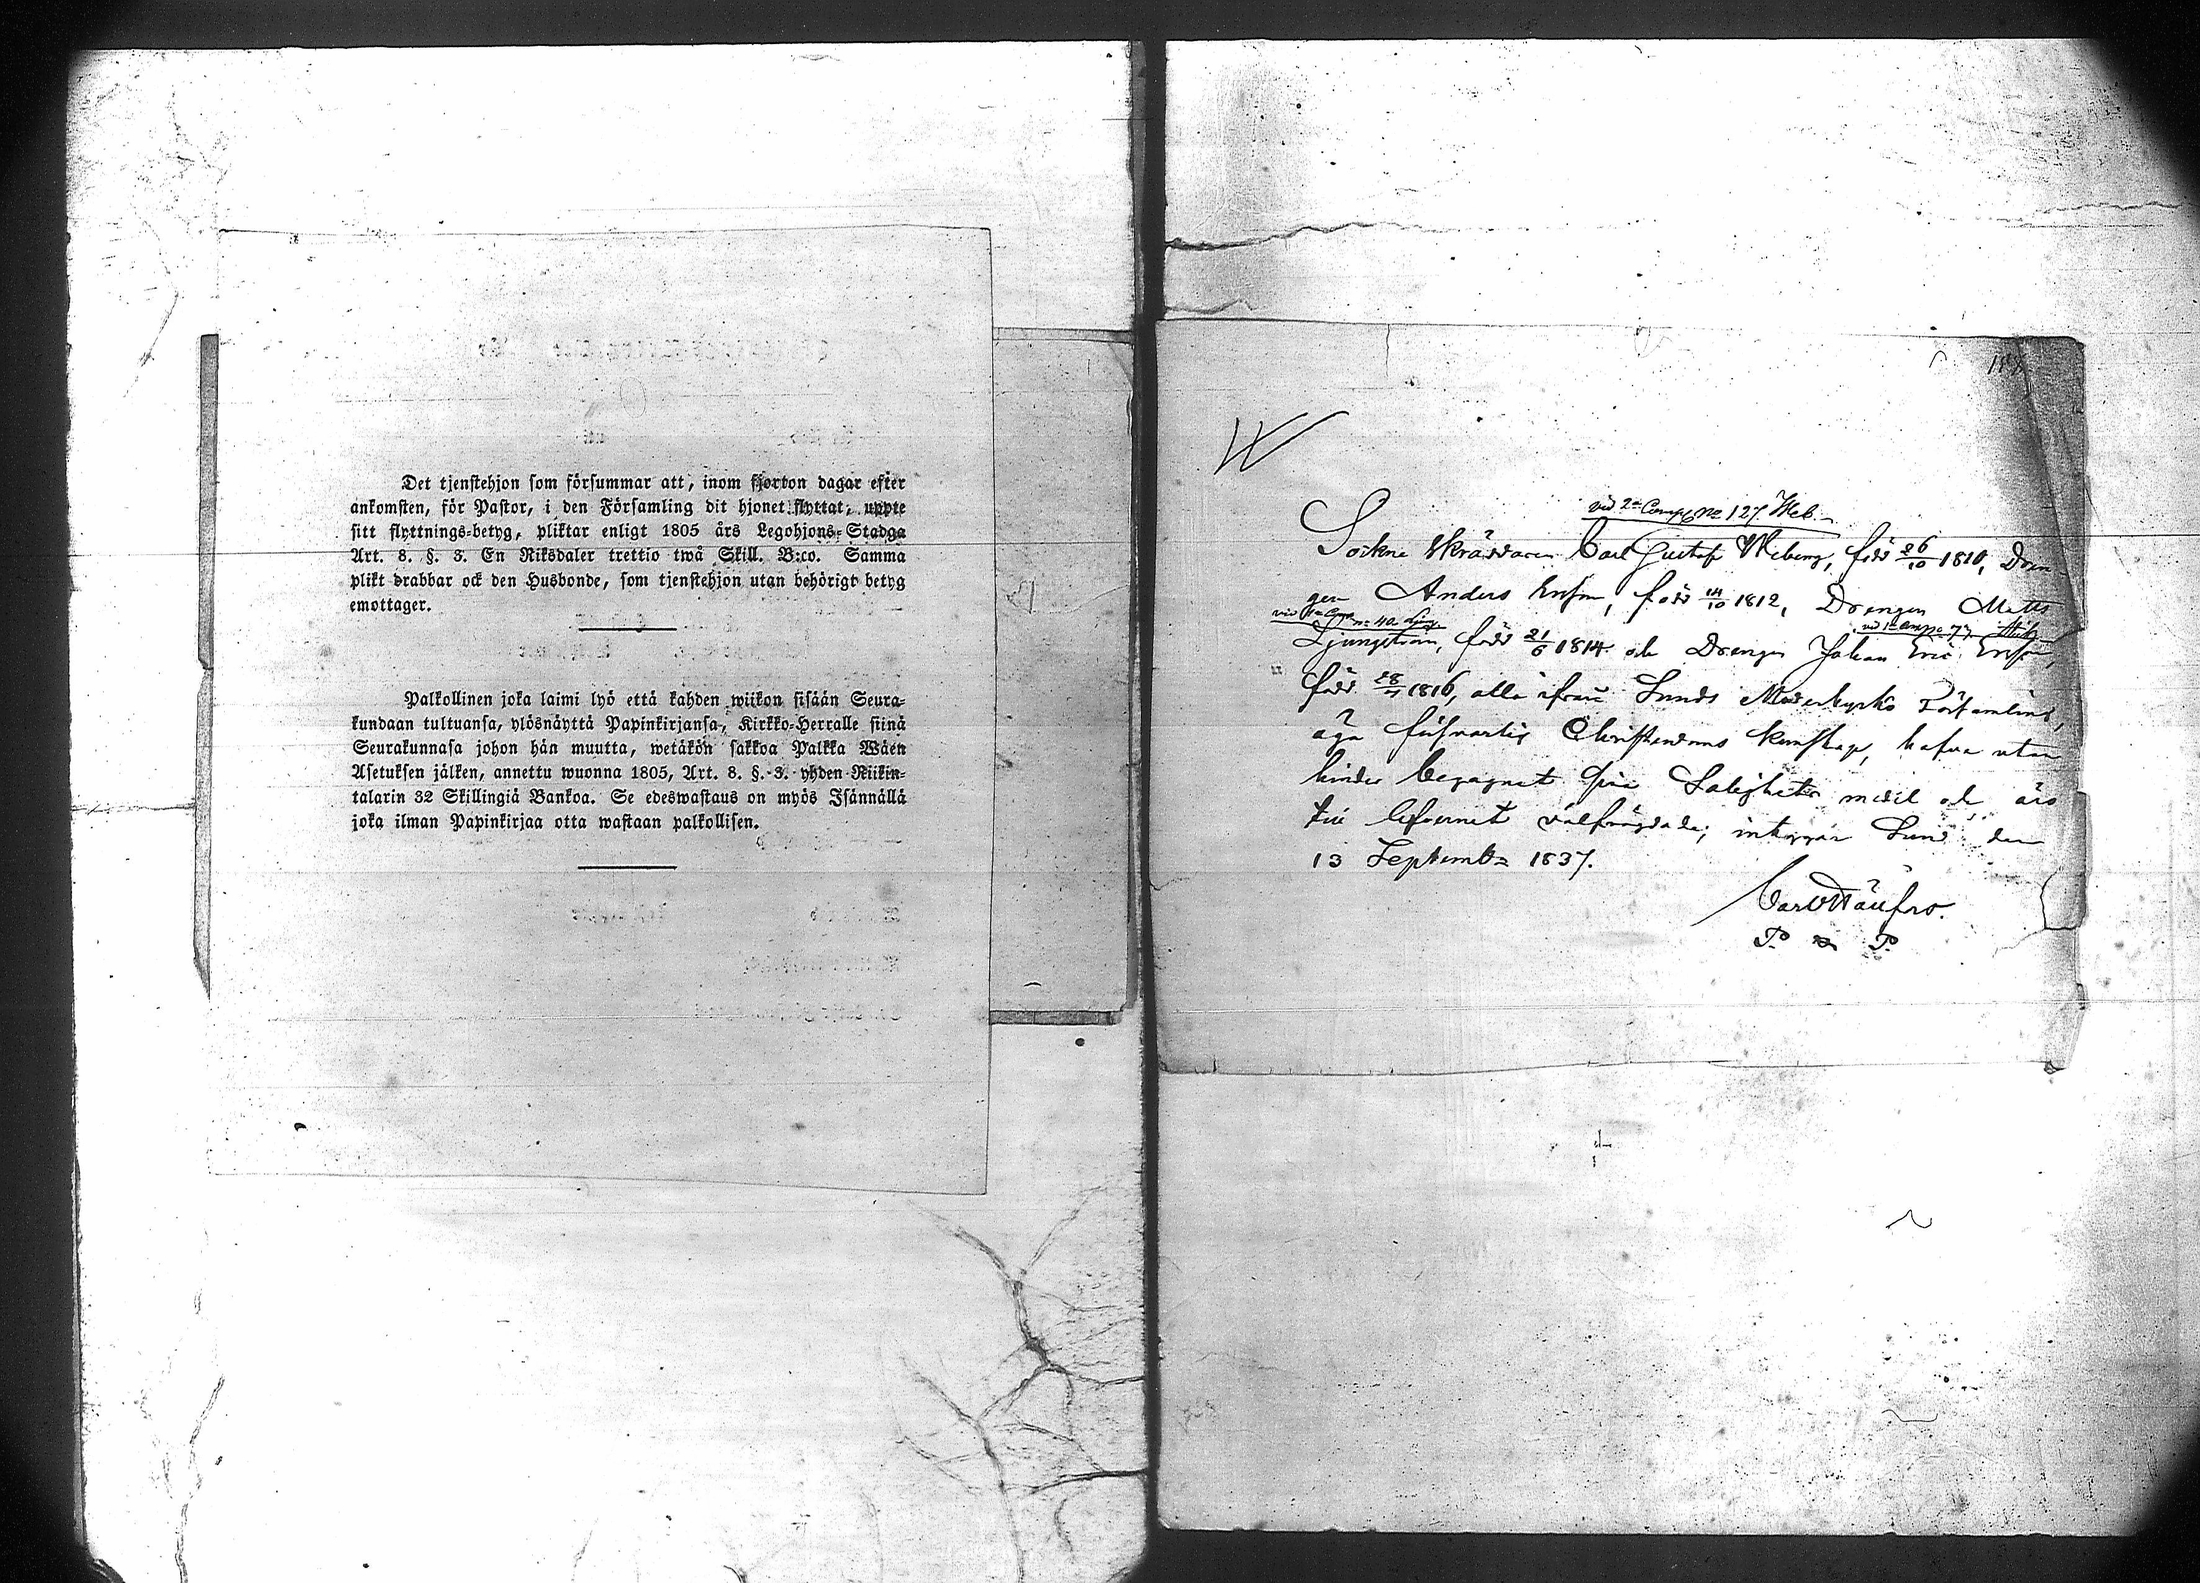 Det tjenstehjon som försummar att, inom fjorton dagar efter
ankomsten, för Pastor, i den Församling dit hjonet flyttat, uppte
sitt flyttnings-betyg, pliktar enligt 1805 års Legohjons-Stadga
Art. 8. §. 3. En Riksdaler trettio twå Skill. B:co. Samma
plikt drabbar ock den Husbonde, som tjenstehjon utan behörigt betyg
emottager.
Palkollinen joka laimi lyö että kahden wiikon sisään Seura-
kundaan tultuansa, ylösnäyttä Papinkirjansa, Kirkko-Herralle siinä
Seurakunnasa johon hän muutta, wetäkön sakkoa Palkka Wäen
Asetuksen jälken, annettu wuonna 1805, Art. 8. §. 3. yhden Riikin-
talarin 32 Skillingiä Bankoa. Se edeswastaus on myös Isännällä
joka ilman Papinkirjaa otta wastaan palkollisen.
W
vid 2a Comp No 127. Web.
Sockne Skräddaren Carl Gustaf Weberg, född 26/10 1810, Dren-
gen Anders Ersson, född 14/10 1812, Drengen Matts
vid 1a Comp No 40 Ljung.
vid 1a Comp No 77
Ljungström, född 21/6 1814 och Drengen Johan Eric Ersson,
född 28/11 1816, alla ifrån Sunds Moderkyrko Församling,
äga försvarlig Christendoms kunskap, hafva utan
hinder begagnat sine Salighets medel och äro
till lefvernet välfrägdade; intygar Sund den
13 September 1837.
P. P.